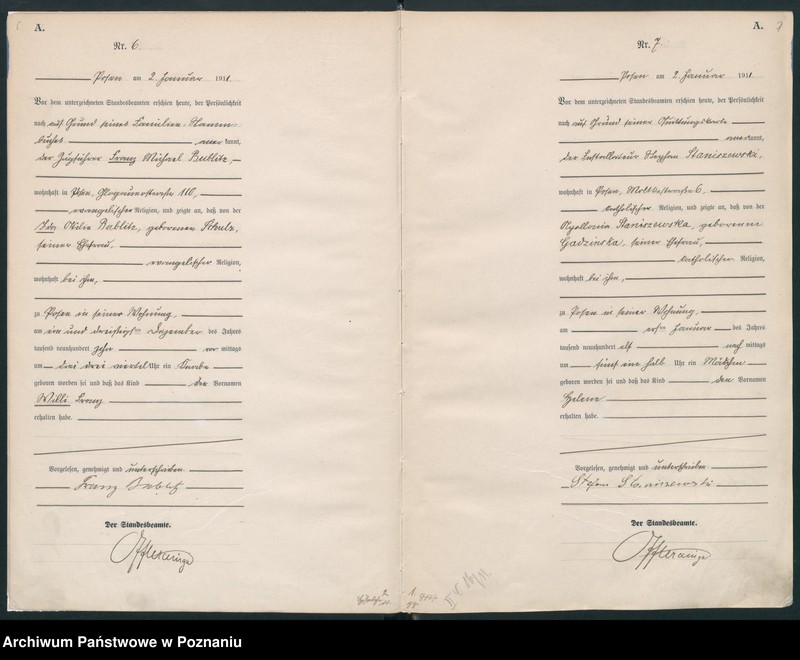 A.
Nr. 6
Posen am 2. Januar 1911.
Vor dem unterzeichneten Standesbeamten erschien heute, der Persönlichkeit
nach auf Grund seines Familien-Stamm-
buches anerkannt,
der Zugführer Franz Michael Bublitz,
wohnhaft in Posen, Glogauerstraße 110,
evangelischer Religion, und zeigte an, daß von der
Ida Otilie Bublitz, geborenen Schulz,
seiner Ehefrau,
evangelischer Religion,
wohnhaft bei ihm,
zu Posen in seiner Wohnung,
am ein und dreißigsten Dezember des Jahres
tausend neunhundert zehn vormittags
um drei drei viertel Uhr ein Knabe
geboren worden sei und daß das Kind die Vornamen
Willi Franz
erhalten habe.
Vorgelesen, genehmigt und unterschrieben
Franz Bublitz
Der Standesbeamte.
A.
7
Nr. 7.
Posen am 2. Januar 1911
Vor dem unterzeichneten Standesbeamten erschien heute, der Persönlichkeit
nach auf Grund seiner Quittungskarte
anerkannt,
der Installateur Stephan Staniszewski,
wohnhaft in Posen, Moltkestraße 6,
katholischer Religion, und zeigte an, daß von der
Apollonia Staniszewska, geborenen
Gadzinska, seiner Ehefrau,
katholischer Religion,
wohnhaft bei ihm,
zu Posen in seiner Wohnung,
am ersten Januar des Jahres
tausend neunhundert elf nachmittags
um fünf ein halb Uhr ein Mädchen
geboren worden sei und daß das Kind den Vornamen
Helene
erhalten habe.
Vorgelesen, genehmigt und unterschrieben
Stefan Staniszewski
Der Standesbeamte.
Archiwum Państwowe w Poznaniu